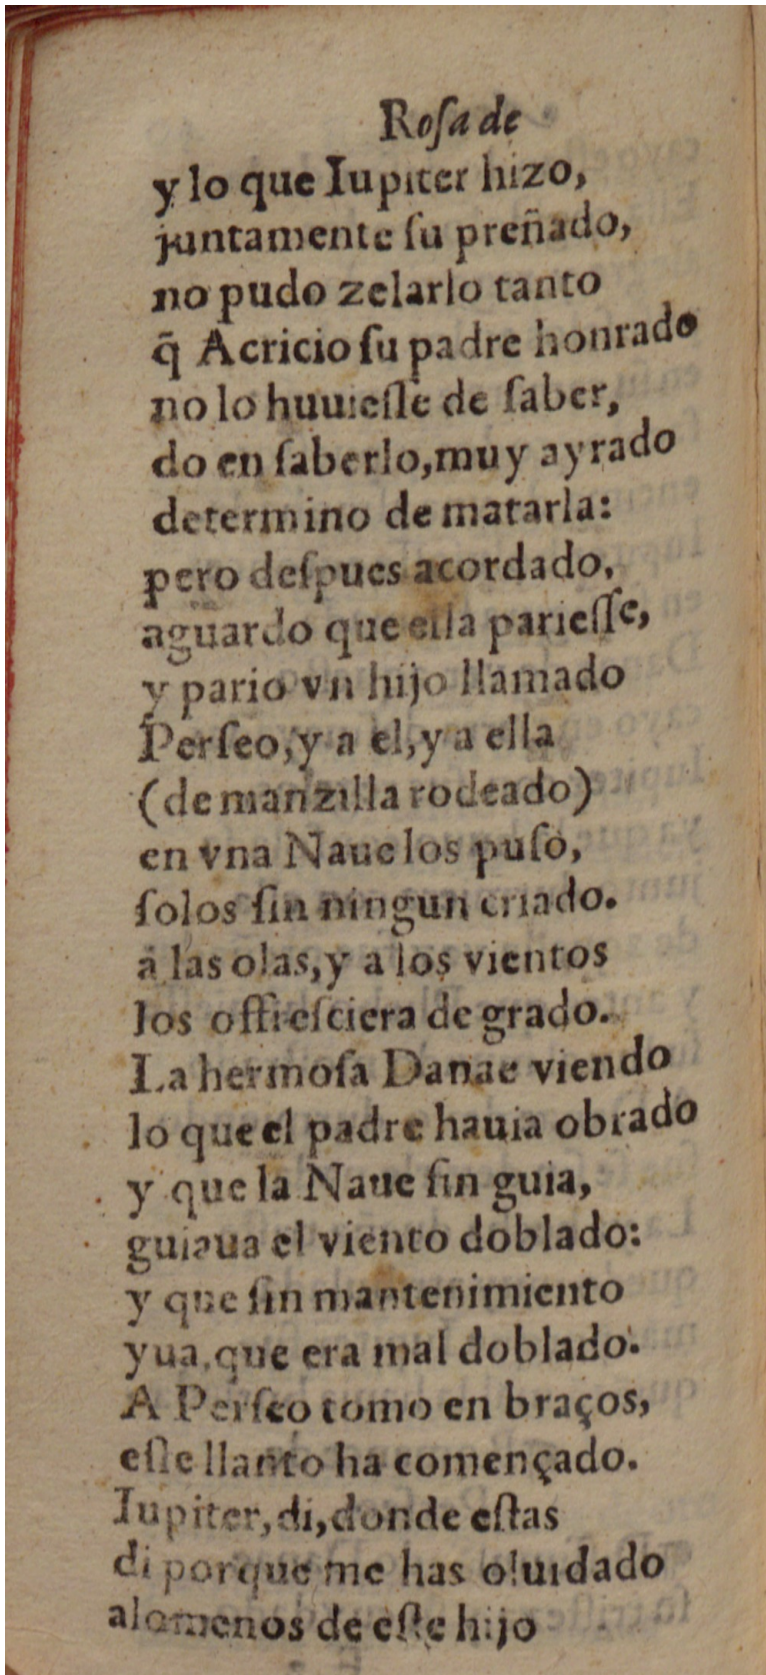 Rosa de
y lo que Iupiter hizo,
juntamente ſu preñado,
no pudo zelarlo tanto
q̃ Acricio ſu padre honrado
no lo huuieſſe de ſaber,
do en ſaberlo,muy ayrado
determino de matarla:
pero deſpues acordado,
aguardo que ella parieſſe,
y pario vn hijo llamado
Perſeo,y a el,y a ella
(de manzilla rodeado)
en vna Naue los puſo,
ſolos ſin ningun criado.
a las olas,y a los vientos
los offreſciera de grado.
La hermoſa Danae viendo
lo que el padre hauia obrado
y que la Naue ſin guia,
guiaua el viento doblado:
y que ſin mantenimiento
yua,que era mal doblado.
A Perſeo tomo en braços,
eſte llanto ha començado.
Iupiter,di,donde eſtas
di porque me has oluidado
alomenos de eſte hijo